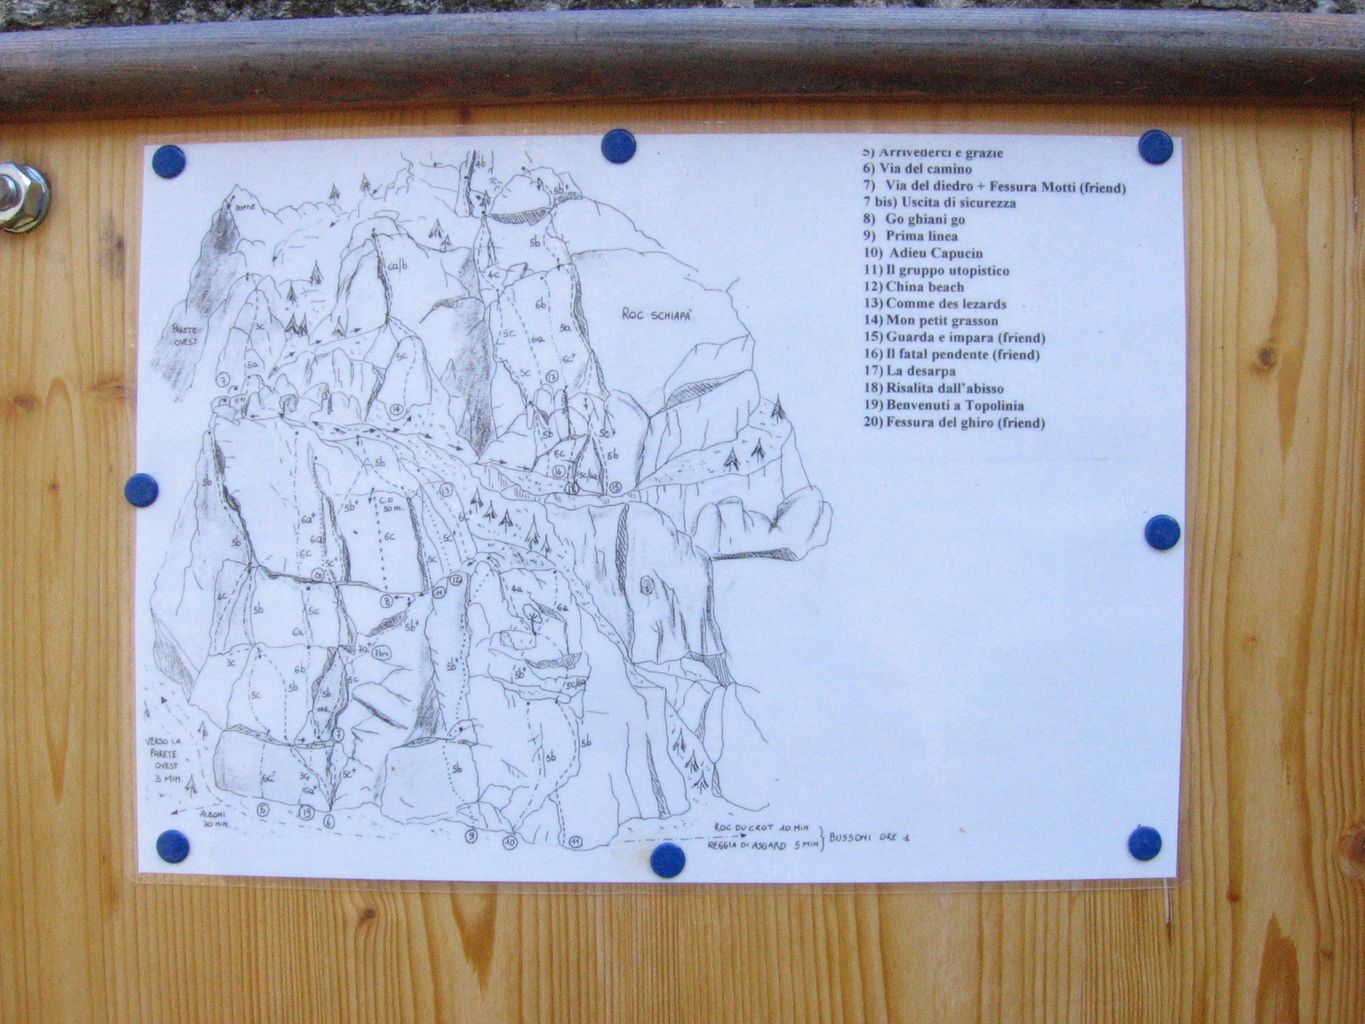 5) Arrivederci e grazie
6) Via del camino
7) Via del diedro + Fessura Motti (friend)
7 bis) Uscita di sicurezza
8) Go ghiani go
9) Prima linea
10) Adieu Capucin
11) Il gruppo utopistico
12) China beach
13) Comme des lezards
14) Mon petit grasson
15) Guarda e impara (friend)
16) Il fatal pendente (friend)
17) La desarpa
18) Risalita dall'abisso
19) Benvenuti a Topolinia
20) Fessura del ghiro (friend)
DOPPIE
PARETE
OVEST
ROC SCHIAPA'
4b
5b+
5b
4c
6a/b
6b
5a
5c
6a
6c+
3c
5c
5c
5a
7
17
14
5b
5c+
5c
5b
16
5c/6a
15
5b
5b
13
6a+
5b+
C.D
30 m.
6a
6c
6c
5b
5c
12
11
8
4c
5b
5c
6a
5b+
4a
6a
7a+
7bis
3c
6b
5c
5b
5c
5b
5b+
5b+
5c/6a
7
5b
5b
5b
VERSO LA
PARETE
OVEST
3 MIN
6c
3c
5c+
5
19
6
9
10
11
ALBONI
30 MIN.
ROC DU CROT 10 MIN
REGGIA DI ASGARD 5 MIN
BUSSONI ORE 1